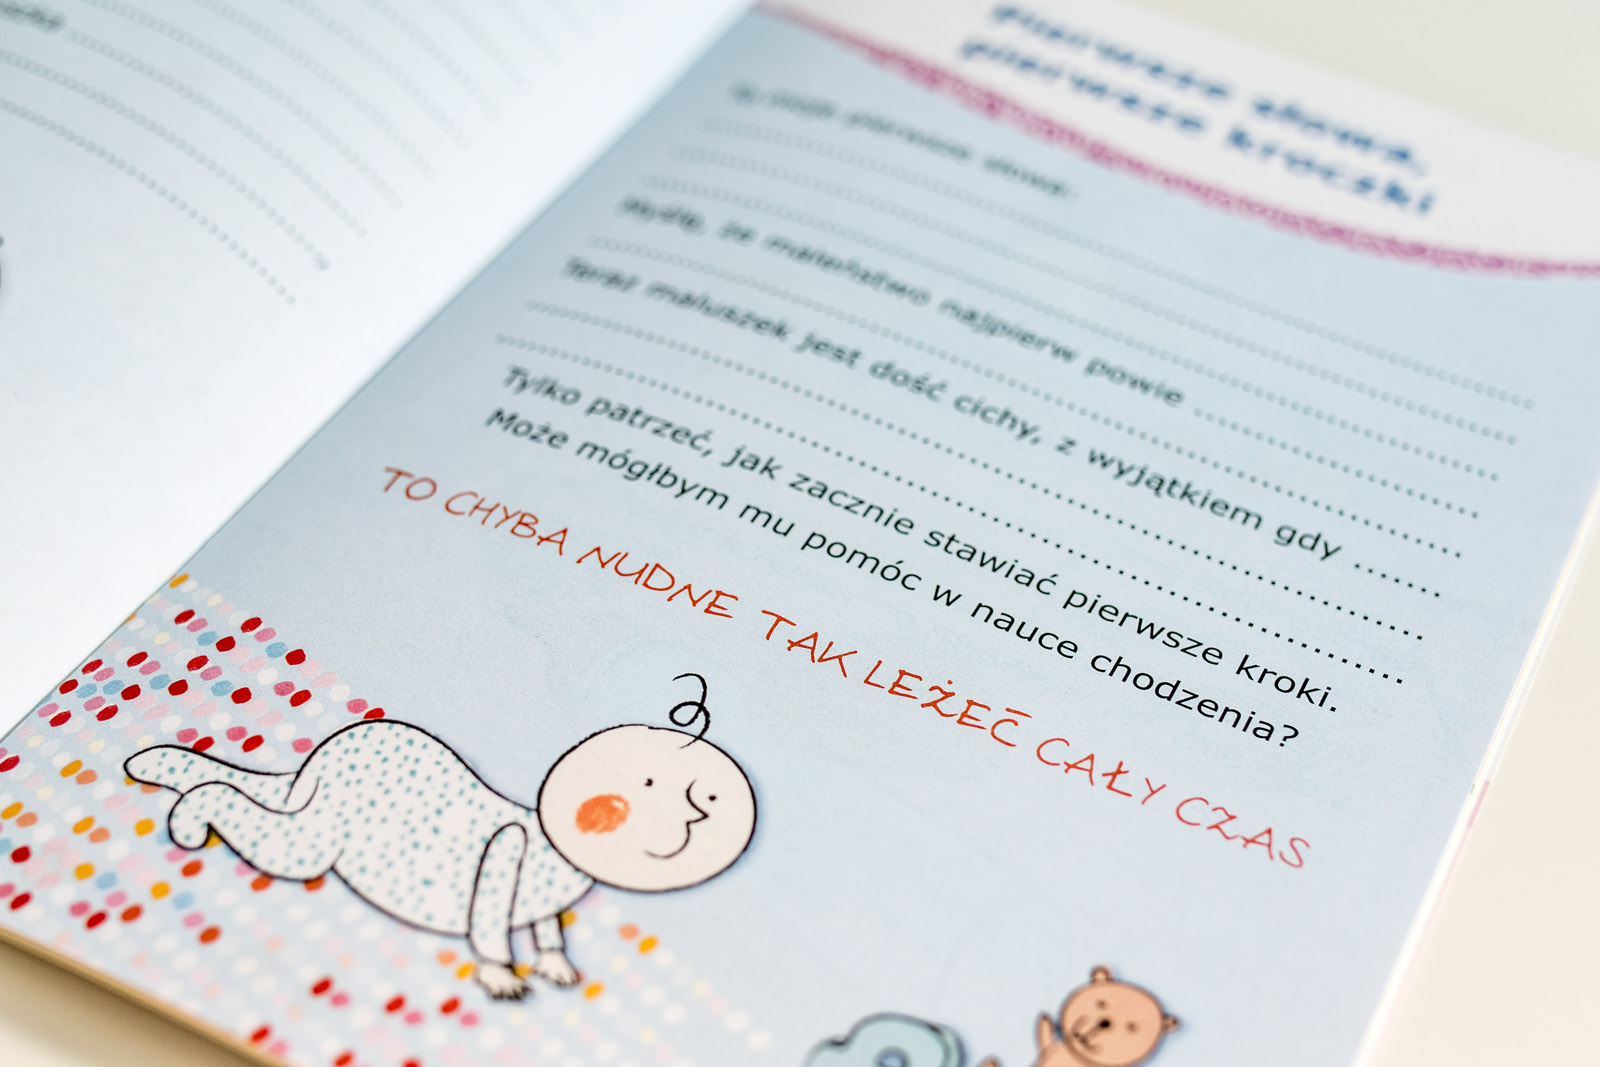 pierwsze słowa,
pierwsze kroczki
moje pierwsze słowa:
Myślę, że maleństwo najpierw powie ..............................
Teraz maluszek jest dość cichy, z wyjątkiem gdy .......
Tylko patrzeć, jak zacznie stawiać pierwsze kroki.
Może mógłbym mu pomóc w nauce chodzenia?
TO CHYBA NUDNE TAK LEŻEĆ CAŁY CZAS